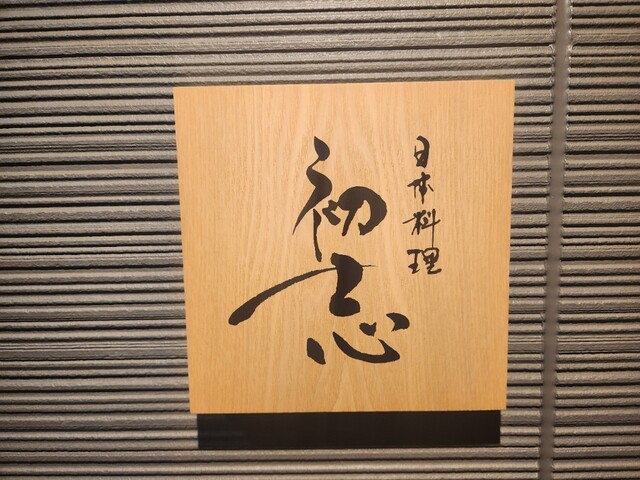 日本料理
初志